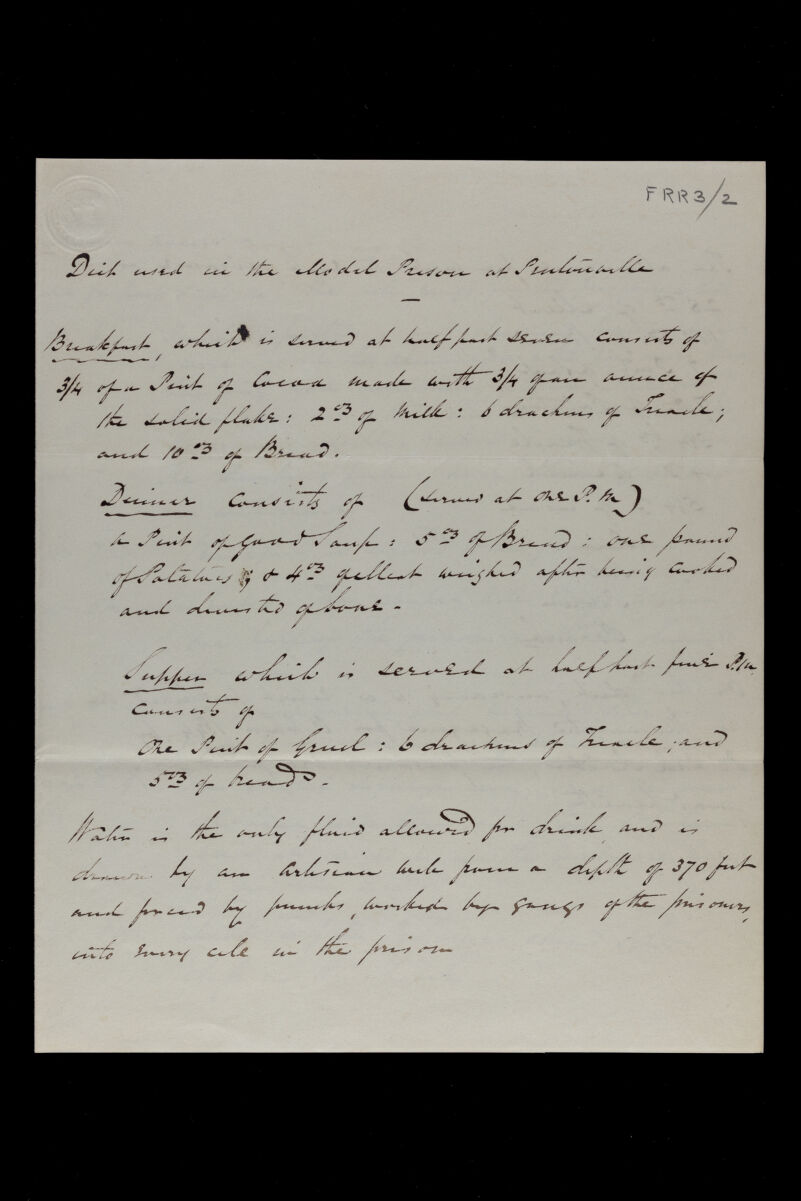 FRR3/2
Diet used in the Model Prison at Pentonville
Breakfast, which is served at half past seven consists of
3/4 of a Pint of Cocoa made with 3/4 of an ounce of
the solid flake: 2 oz of Milk: 6 drachms of Treacle;
and 10 oz of Bread.
Dinner consists of (served at One P.M)
a Pint of good Soup: 5 oz of Bread: one pound
of Potatoes; & 4 oz of Meat weighed after being cooked
and divested of bone -
Supper which is served at half past five P.M.
consists of
One Pint of Gruel: 6 drachms of Treacle; and
5 oz of bread -
Water is the only fluid allowed for drink and is
drawn by an Artesian well from a depth of 370 feet
and forced by pumps, worked by gangs of the prisoners,
into every cell in the prison